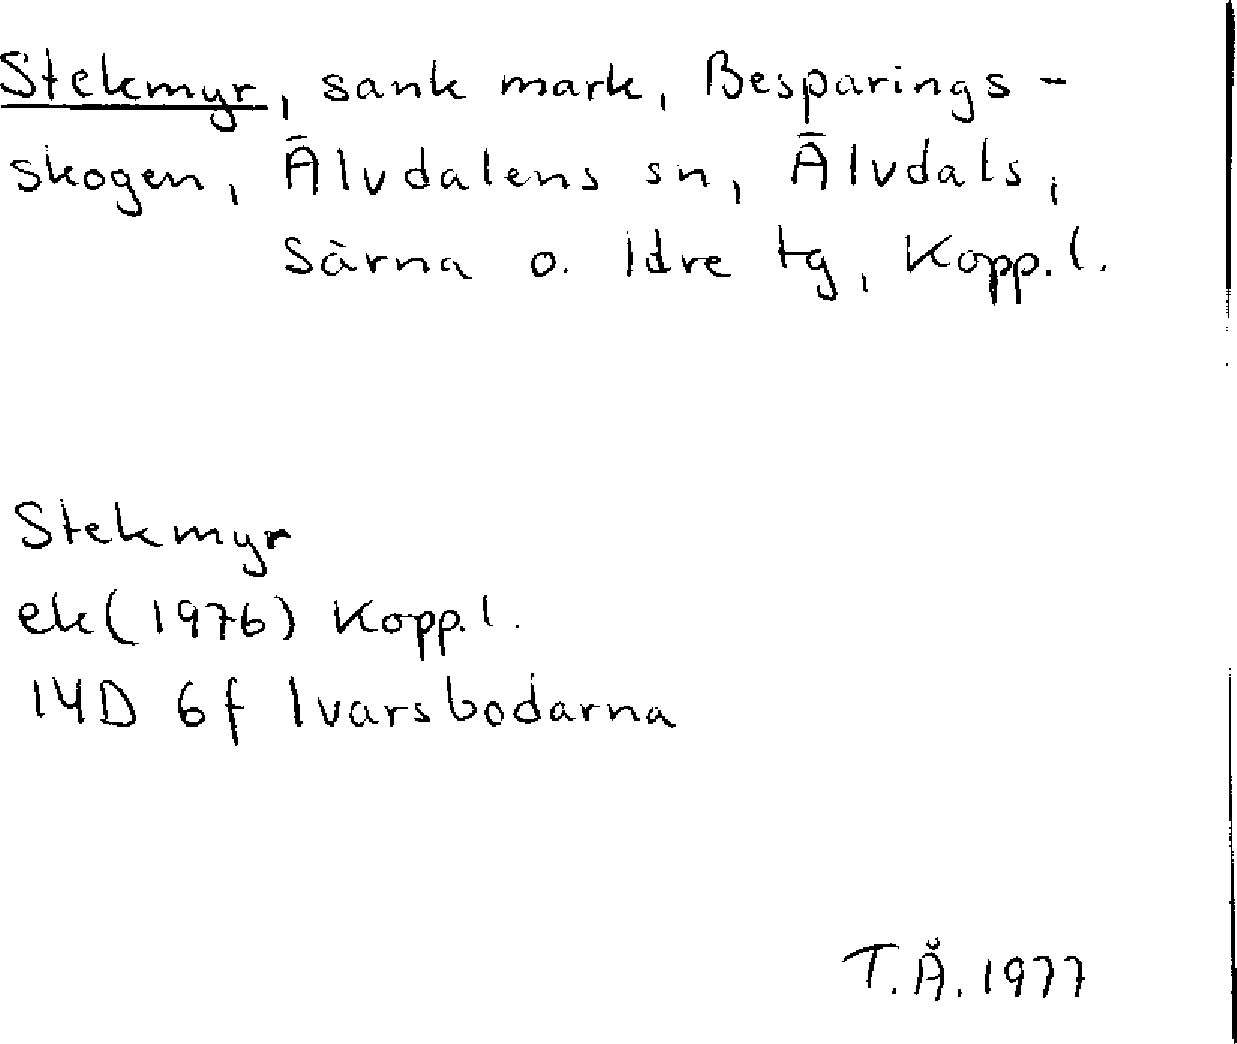 Stekmyr, sank mark, Besparings-
skogen, Älvdalens sn, Älvdals,
Särna o. Idre tg, Kopp. l.
Stekmyr
ek (1976) Kopp. l.
14D 6f Ivarsbodarna
T.Å. 1977